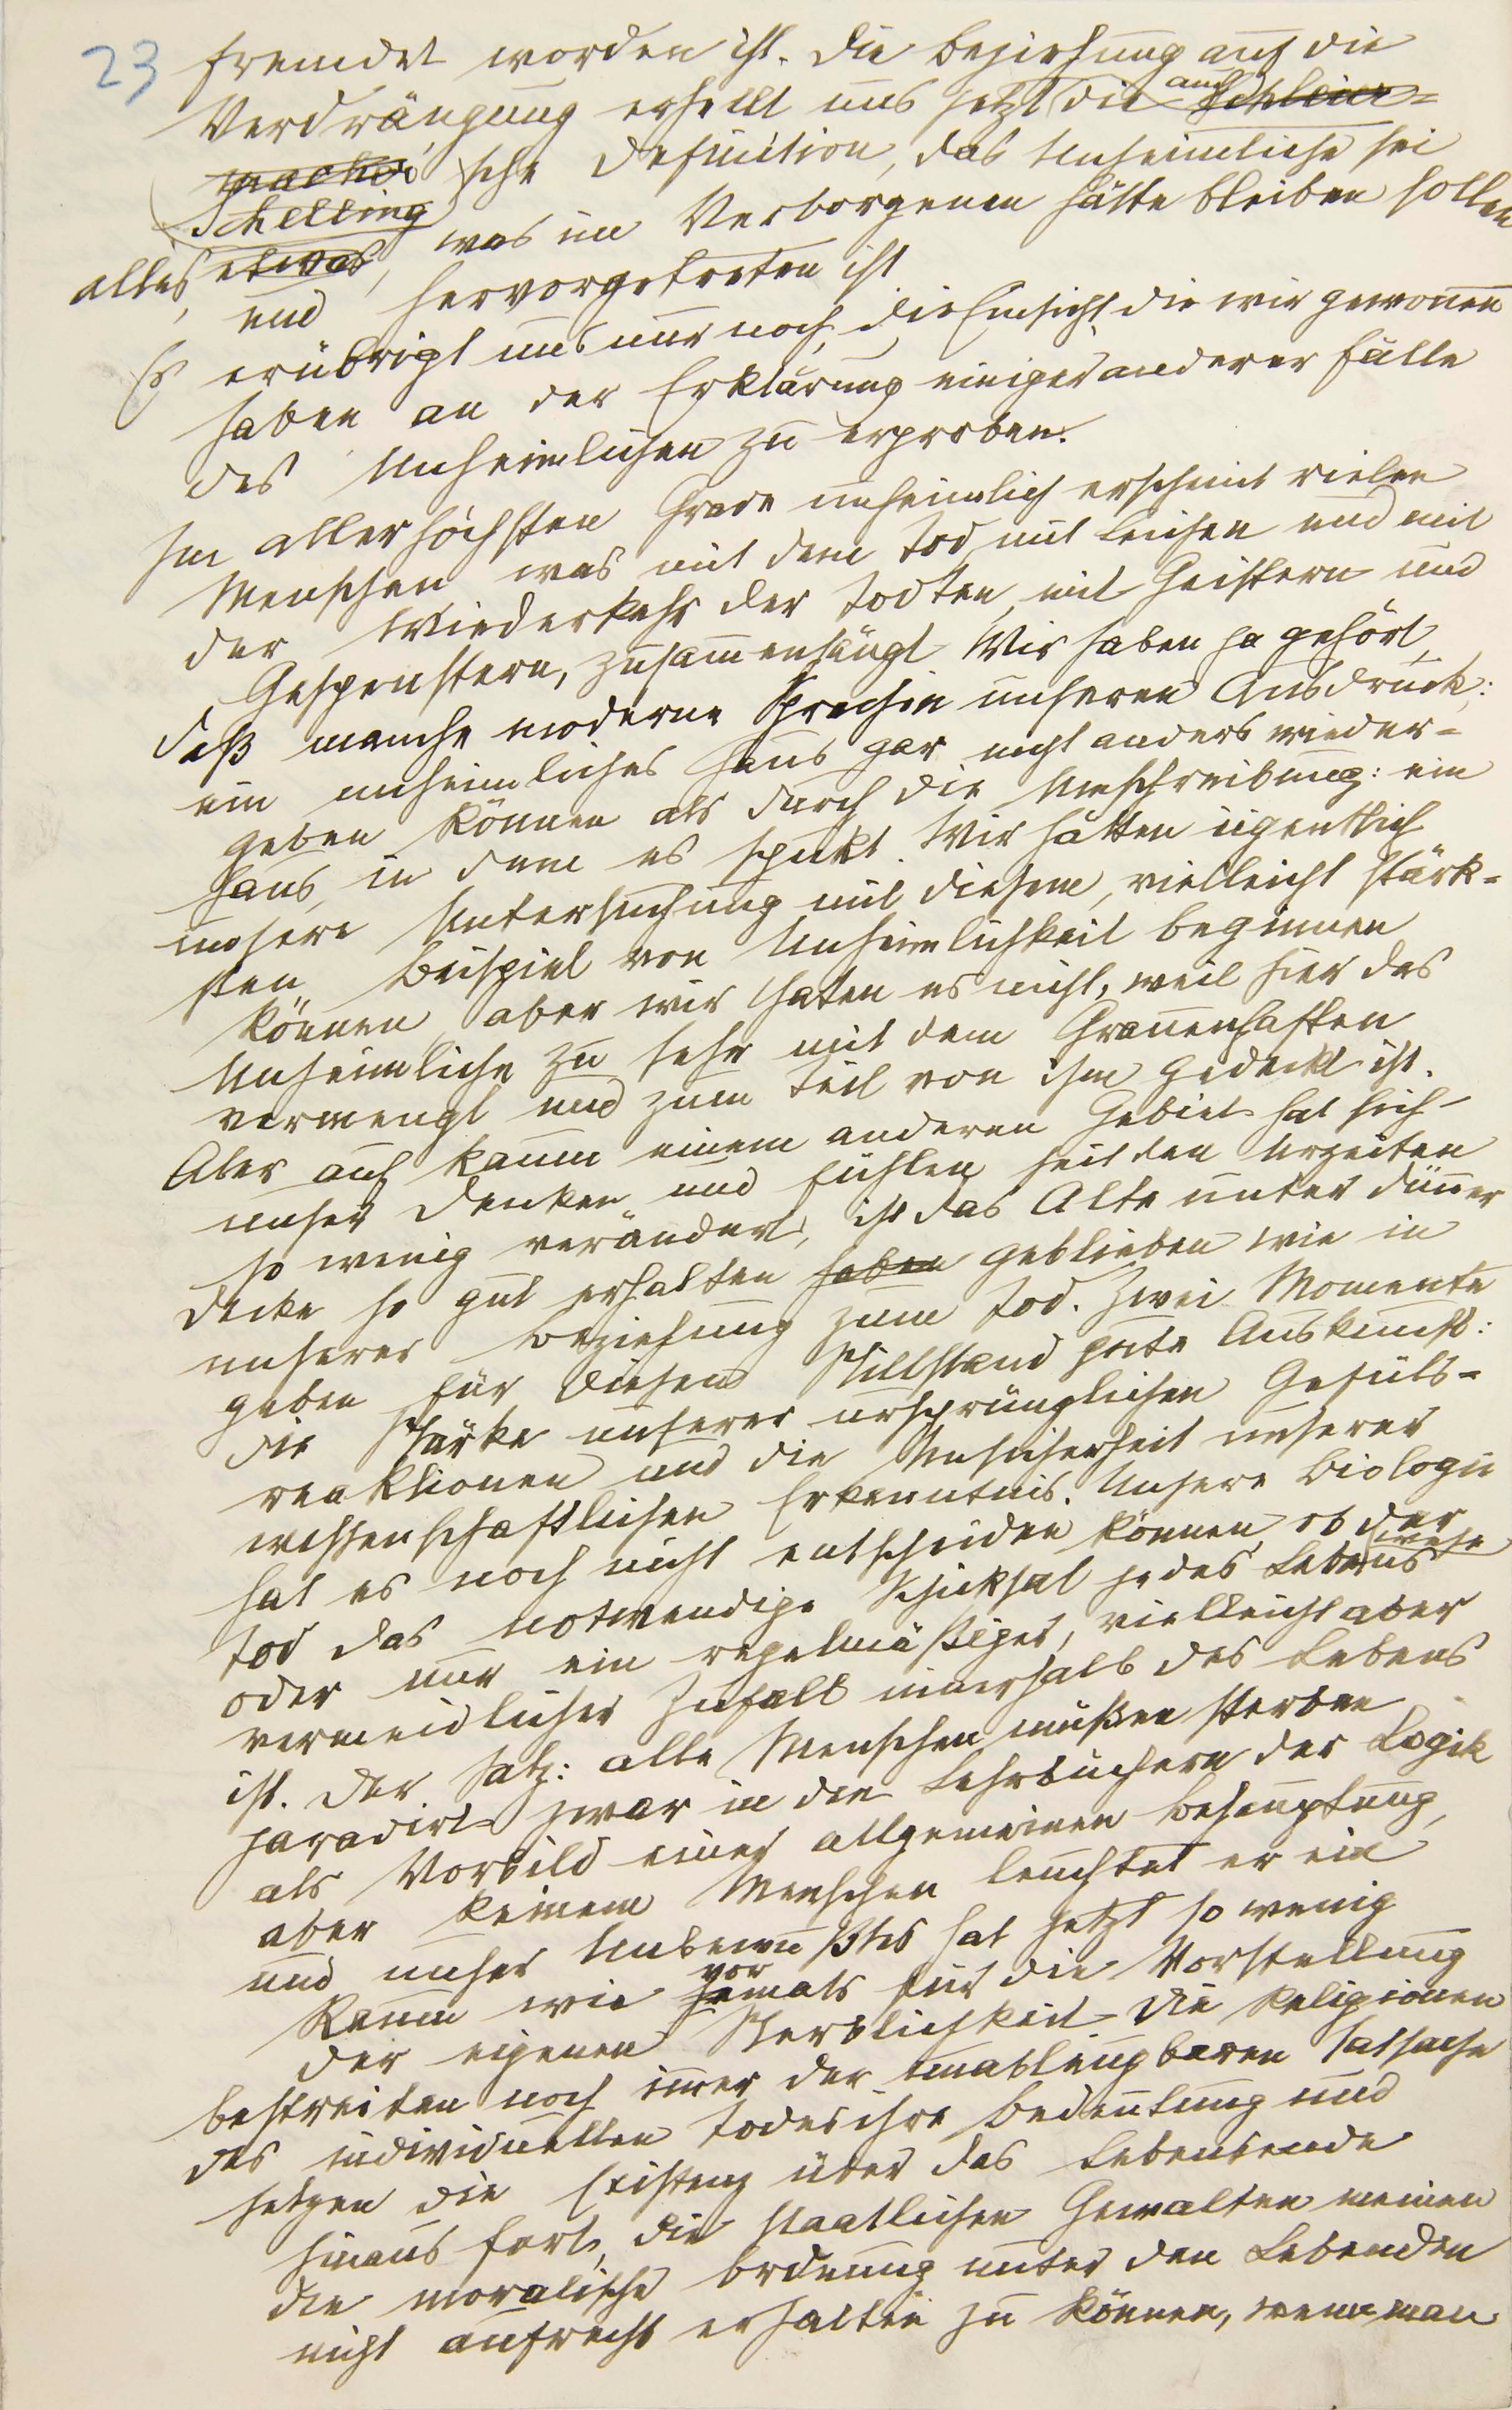 23
fremdet worden ist. Die Beziehung auf die
Verdrängung erhellt uns jetzt auch die Schleier=
macher
Schelling'sche Definition, das Unheimliche sei
alles, etwas, was im Verborgenen hätte bleiben sollen
und hervorgetreten ist
Es erübrigt uns nur noch, die Einsicht die wir gewonnen
haben an der Erklärung einiger anderer Fälle
des Unheimlichen zu erproben.
Im allerhöchsten Grade unheimlich erscheint vielen
Menschen was mit dem Tod, mit Leichen und mit
der Wiederkehr der Todten, mit Geistern und
Gespenstern, zusammenhängt Wir haben ja gehört,
daß manche moderne Sprachen unseren Ausdruck:
ein unheimliches Haus gar nicht anders wieder=
geben können als durch die Umschreibung: ein
Haus, in dem es spukt. Wir hätten eigentlich
unsere Untersuchung mit diesem, vielleicht stärk=
sten Beispiel von Unheimlichkeit beginnen
können, aber wir thaten es nicht, weil hier das
Unheimliche zu sehr mit dem Grauenhaften
vermengt und zum Teil von ihm gedeckt ist.
Aber auf kaum einem anderen Gebiet hat sich
unser Denken und Fühlen seit den Urzeiten
so wenig verändert, ist das Alte unter dünner
Decke so gut erhalten haben geblieben wie in
unserer Beziehung zum Tod. Zwei Momente
geben für diesen Stillstand gute Auskunft:
die Stärke unserer ursprünglichen Gefüls=
reaktionen und die Unsicherheit unserer
wissenschaftlichen Erkenntnis. Unsere Biologie
hat es noch nicht entscheiden können, ob der
Tod das notwendige Schicksal jedes Lebewesens
oder nur ein regelmäßiger, vielleicht aber
vermeidlicher Zufall innerhalb des Lebens
ist. Der Satz: alle Menschen müßen sterben
paradirt zwar in den Lehrbüchern der Logik
als Vorbild einer allgemeinen Behauptung,
aber keinem Menschen leuchtet er ein
und unser Unbewußtes hat jetzt so wenig
Raum wie vormals für die Vorstellung
der eigenen Sterblichkeit Die Religionen
bestreiten noch immer der unableugbaren Tatsache
des individuellen Todes ihre Bedeutung und
setzen die Existenz über das Lebensende
hinaus fort, die staatlichen Gewalten meinen
die moralische Ordnung unter den Lebenden
nicht aufrecht erhalten zu können, wenn man